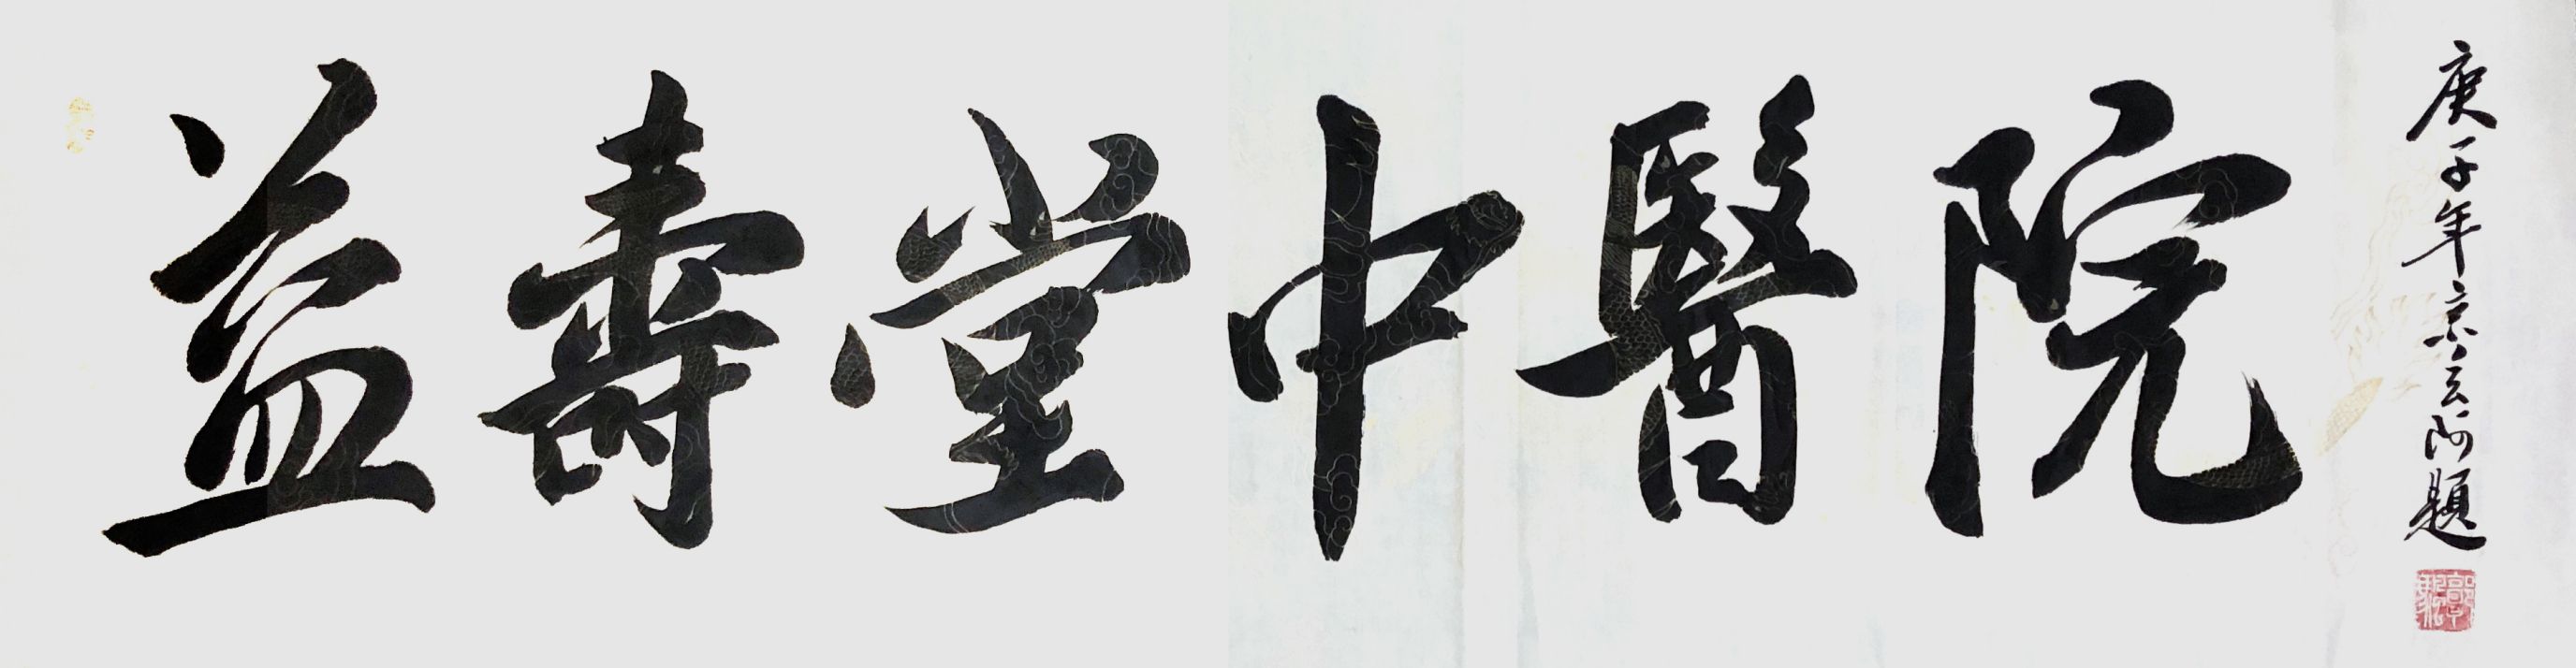 益壽堂中醫院
庚子年京云阿題